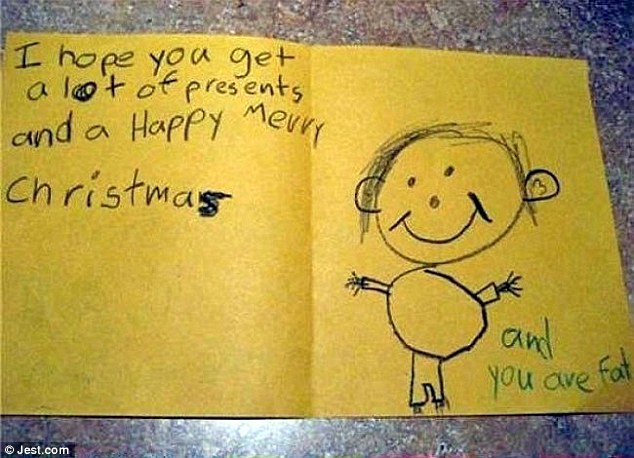 I hope you get
a lot of presents
and a Happy Merry
Christmas
and
you are Fat
© Jest.com